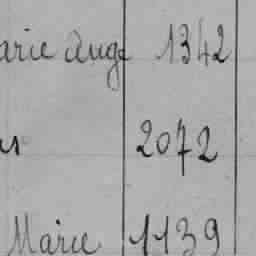 arie Ange 1342
2072
Marie 1139